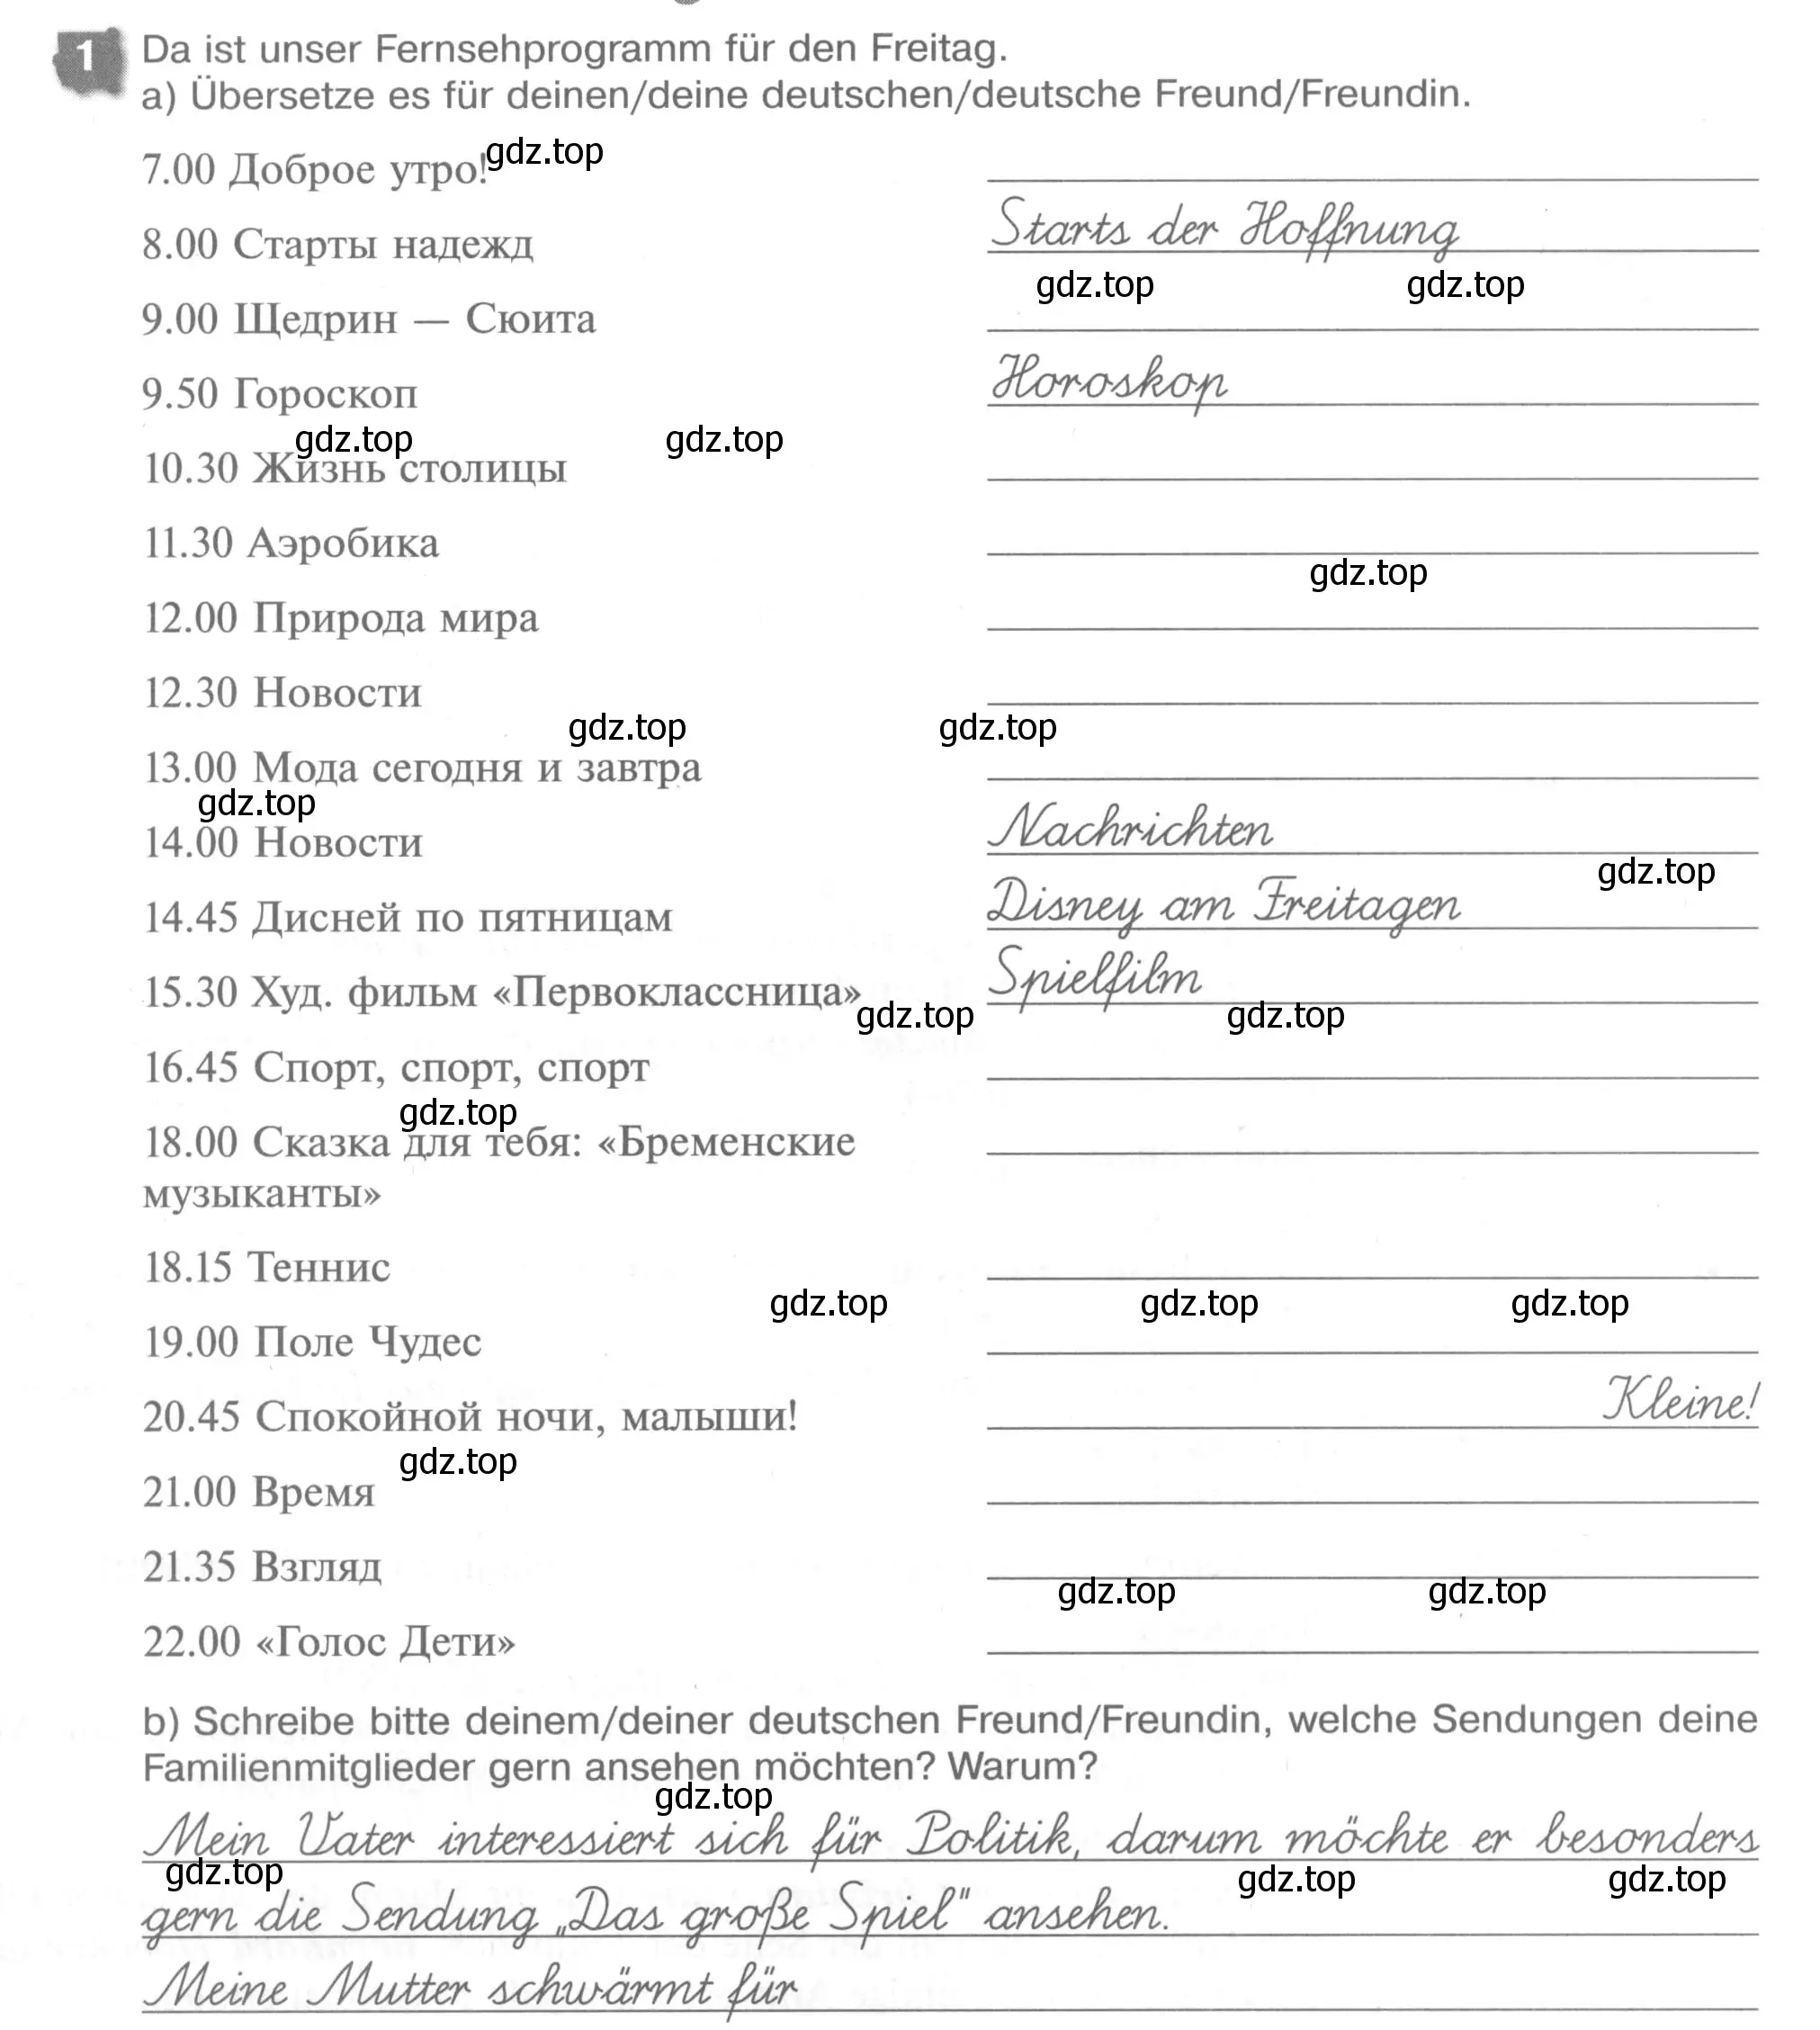 1 Da ist unser Fernsehprogramm für den Freitag.
a) Übersetze es für deinen/deine deutschen/deutsche Freund/Freundin.
7.00 Доброе утро! gdz.top
8.00 Старты надежд Starts der Hoffnung
gdz.top gdz.top
9.00 Щедрин — Сюита
9.50 Гороскоп Horoskop
gdz.top gdz.top
10.30 Жизнь столицы
11.30 Аэробика
gdz.top
12.00 Природа мира
12.30 Новости
gdz.top gdz.top
13.00 Мода сегодня и завтра
gdz.top
14.00 Новости Nachrichten
gdz.top
14.45 Дисней по пятницам Disney am Freitagen
15.30 Худ. фильм «Первоклассница» Spielfilm
gdz.top gdz.top
16.45 Спорт, спорт, спорт
gdz.top
18.00 Сказка для тебя: «Бременские
музыканты»
18.15 Теннис
gdz.top gdz.top gdz.top
19.00 Поле Чудес
20.45 Спокойной ночи, малыши! Kleine!
gdz.top
21.00 Время
21.35 Взгляд
gdz.top gdz.top
22.00 «Голос Дети»
b) Schreibe bitte deinem/deiner deutschen Freund/Freundin, welche Sendungen deine
Familienmitglieder gern ansehen möchten? Warum?
gdz.top
Mein Vater interessiert sich für Politik, darum möchte er besonders
gdz.top gdz.top gdz.top
gern die Sendung „Das große Spiel" ansehen.
Meine Mutter schwärmt für